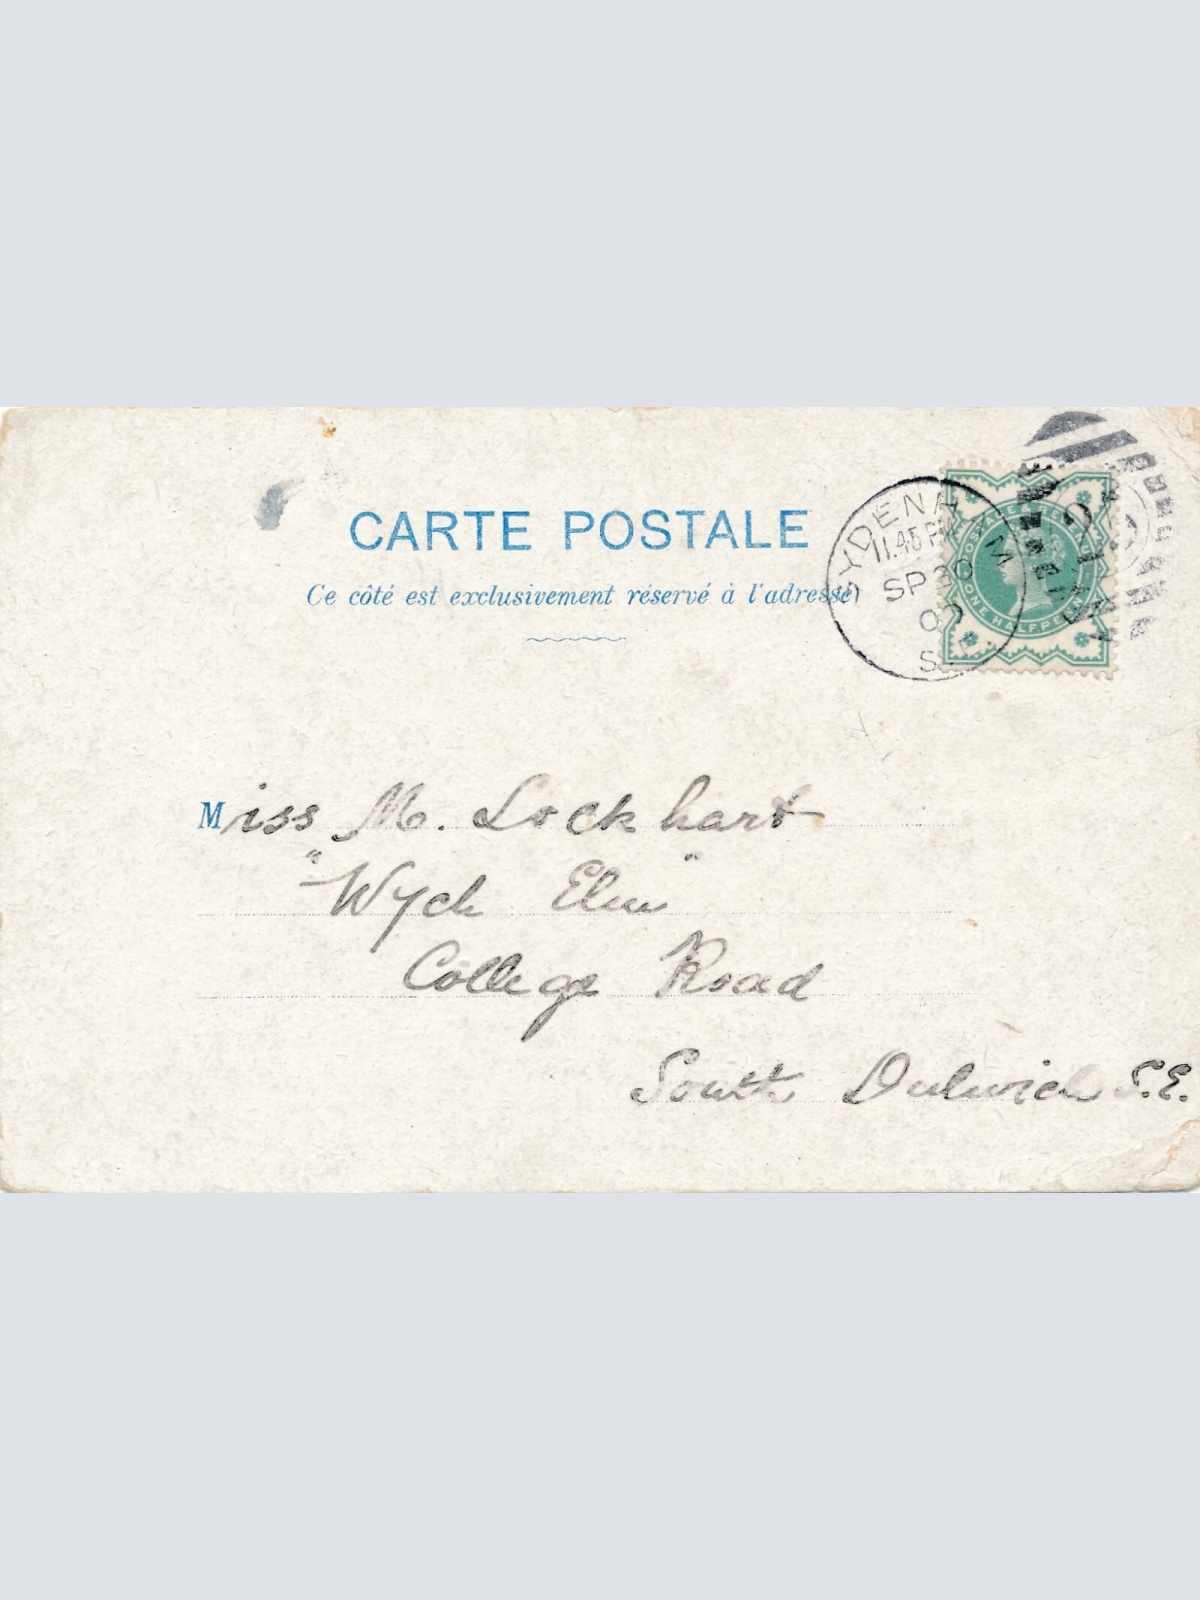 CARTE POSTALE
Ce côté est exclusivement réservé à l'adresse
SYDENHAM
11.45 PM
SP 30
00
S.E.
POSTAGE
ONE HALFPENNY
Miss M. Lockhart
"Wych Elm"
College Road
South Dulwich S.E.